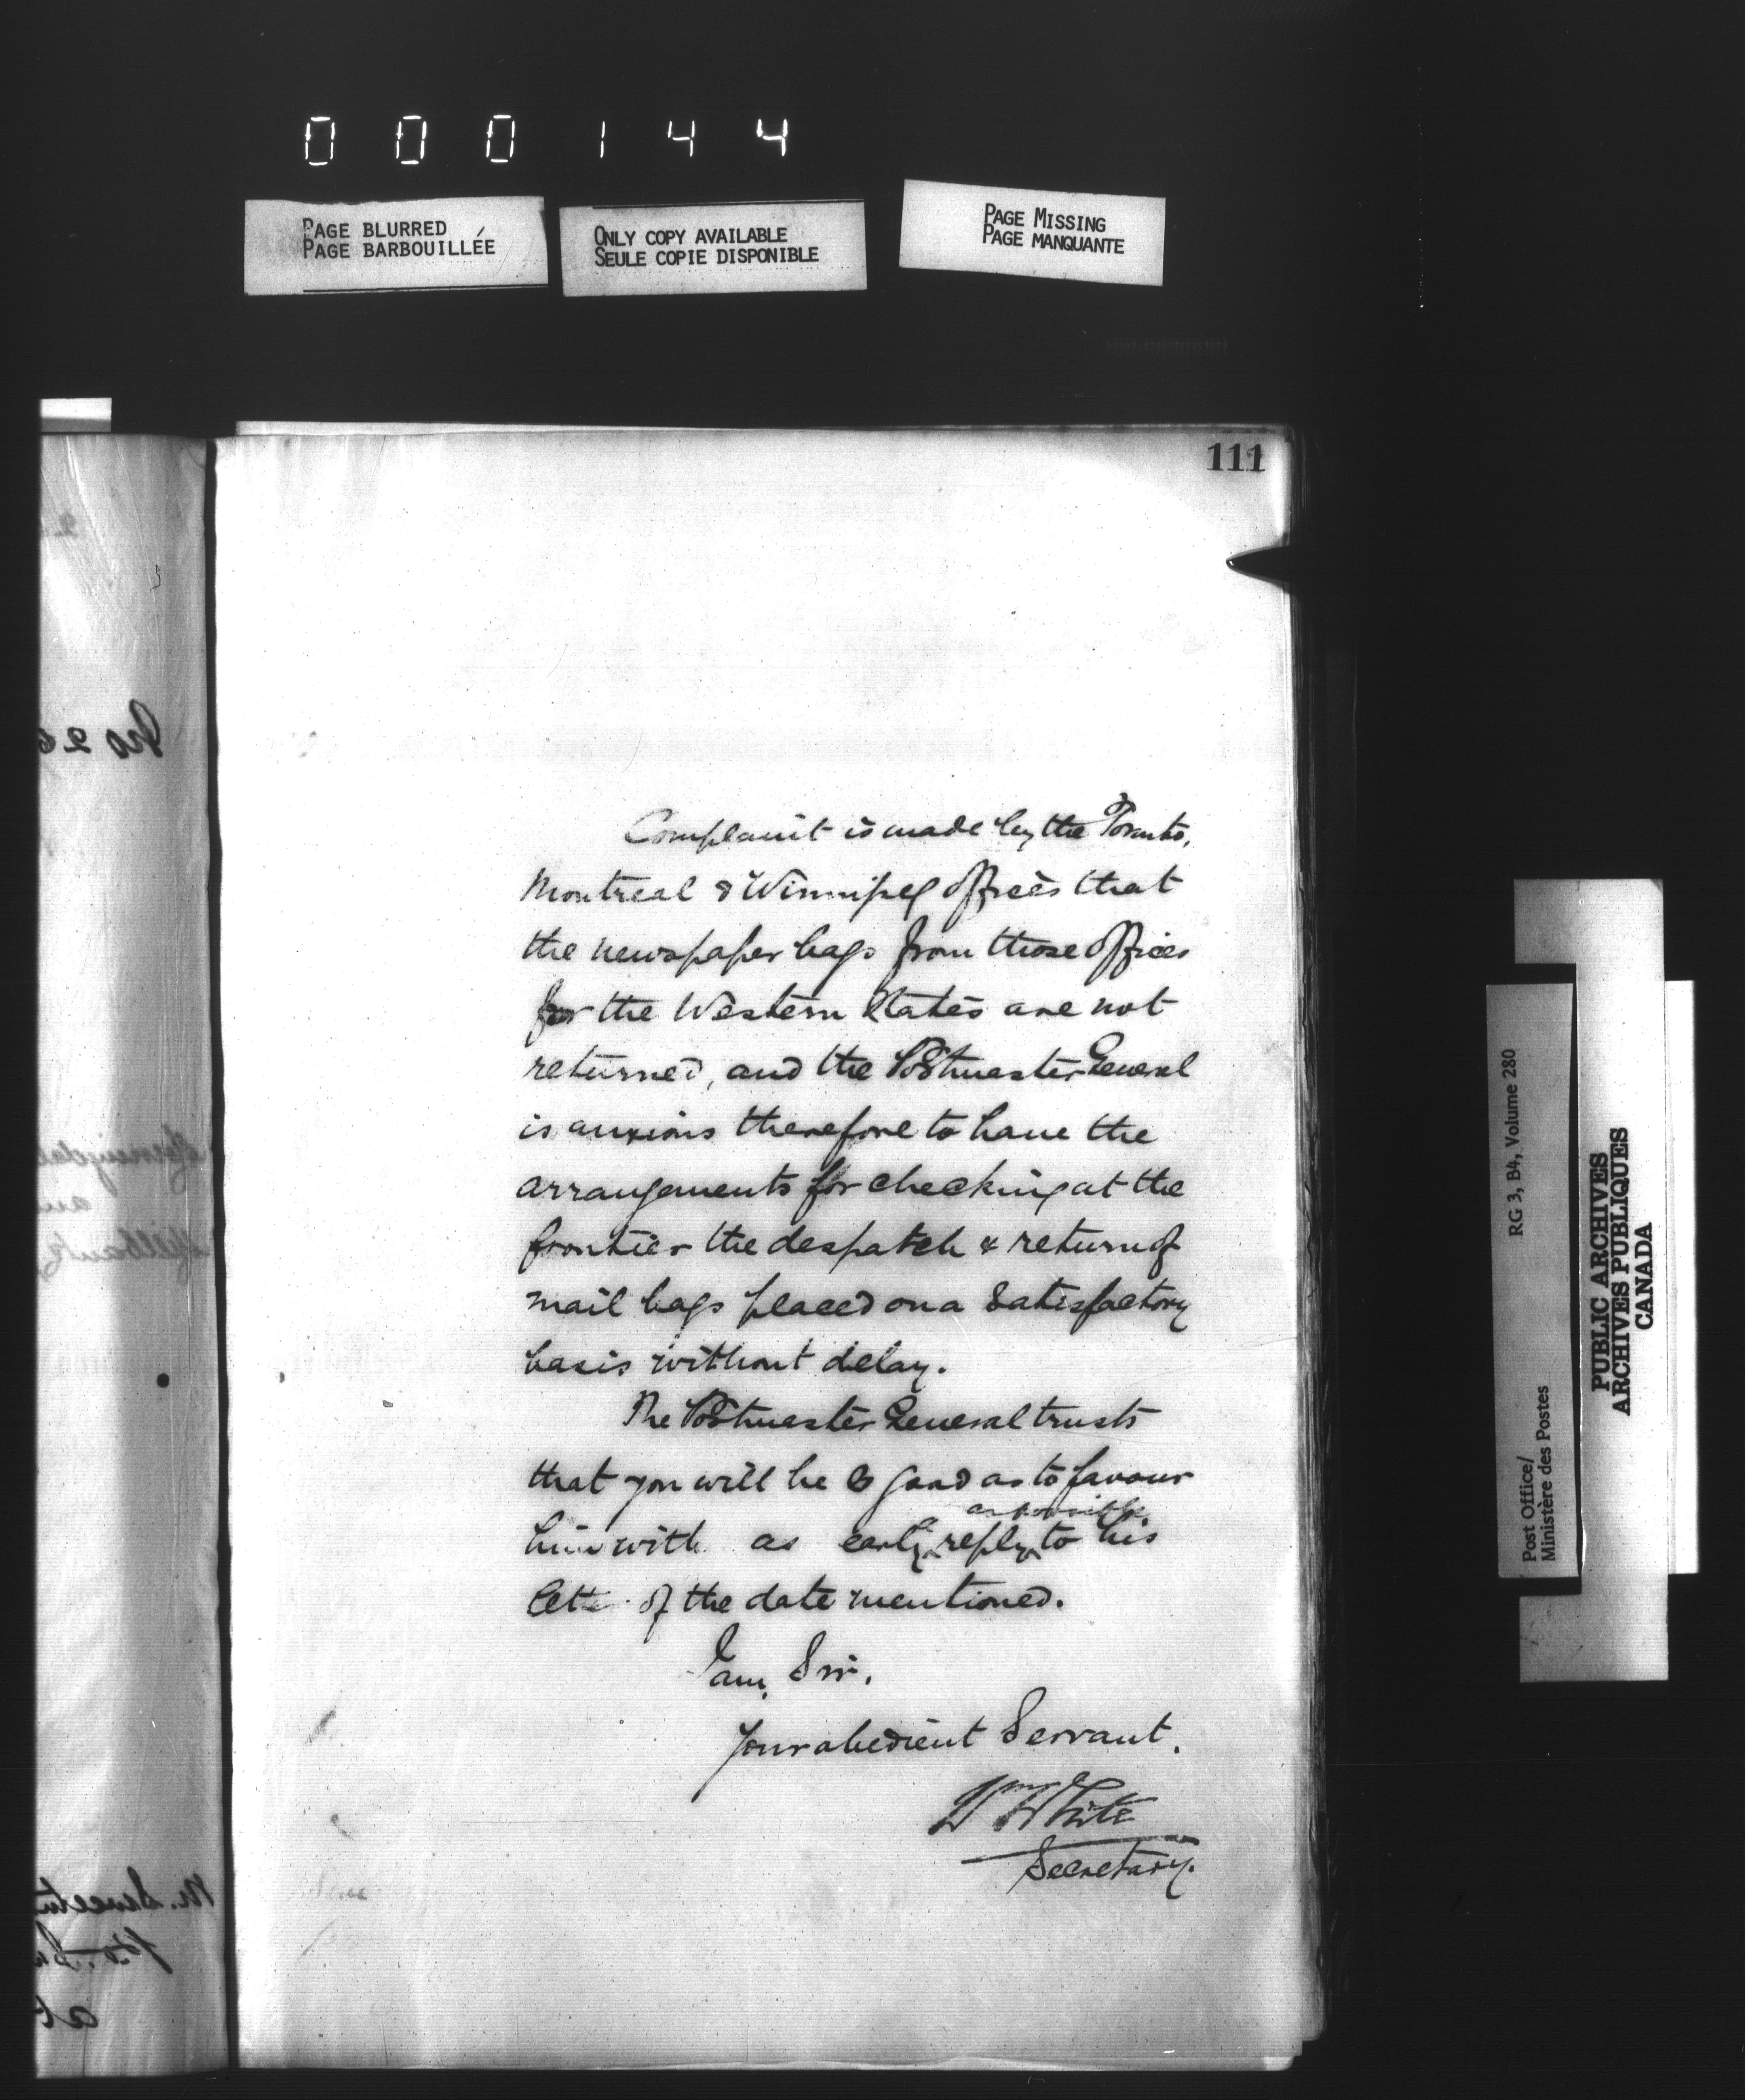 000144
PAGE BLURRED
PAGE BARBOUILLÉE
ONLY COPY AVAILABLE
SEULE COPIE DISPONIBLE
PAGE MISSING
PAGE MANQUANTE
111
Complaint is made by the Toronto,
Montreal & Winnipeg offices that
the newspaper bags from those offices
for the Western States are not
returned, and the Postmaster General
is anxious therefore to have the
arrangements for checking at the
frontier the despatch & return of
mail bags placed on a satisfactory
basis without delay.
The Postmaster General trusts
that you will be so good as to favour
him with as early a reply as possible to his
letter of the date mentioned.
I am, Sir,
Your obedient Servant.
Wm White
Secretary.
Post Office/
Ministère des Postes
RG 3, B4, Volume 280
PUBLIC ARCHIVES
ARCHIVES PUBLIQUES
CANADA